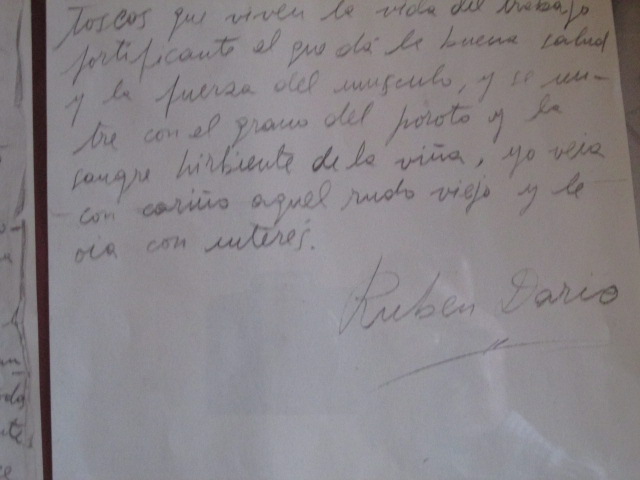 toscos que viven la vida del trabajo
fortificante el que dá la buena salud
y la fuerza del musculo, y se nu-
tre con el grano del poroto y la
sangre hirbiente de la viña, yo veia
con cariño aquel rudo viejo y le
oia con interés.
Ruben Dario